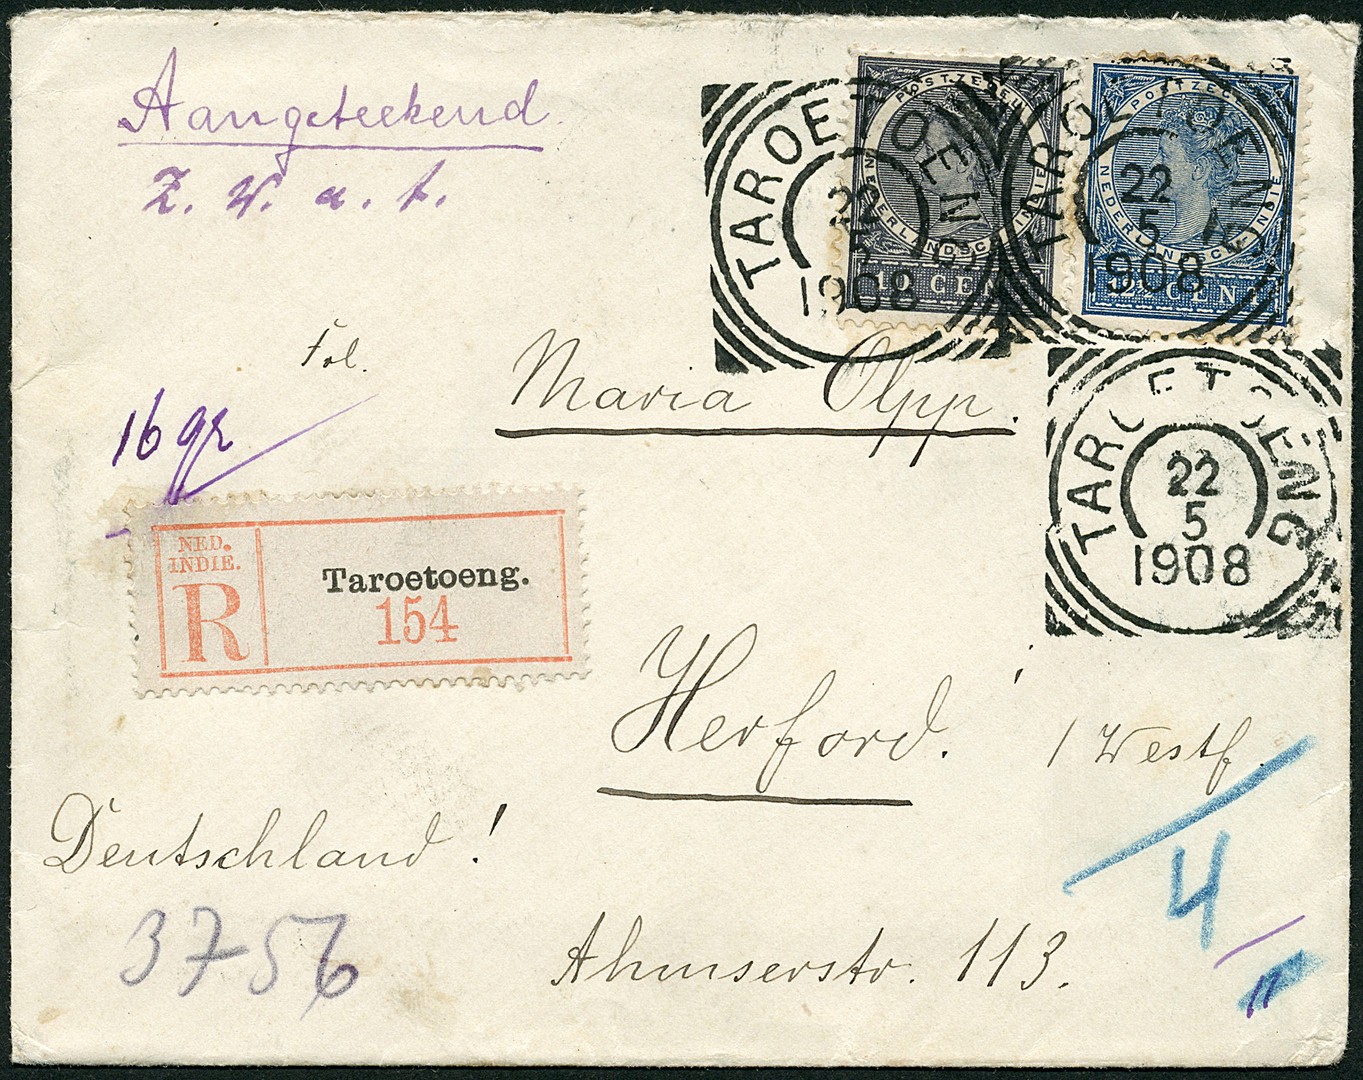 Aangeteekend
Z. W. a. t.
POSTZEGEL
NEDERLANDSCH-INDIE
10 CENT
POSTZEGEL
NEDERLANDSCH-INDIE
22½ CENT
TAROETOENG
22
5
1908
TAROETOENG
22
5
1908
Frl.
Maria Olpp.
16 gr
TAROETOENG
22
5
1908
NED.
INDIE.
R
Taroetoeng.
154
Herford. / Westf.
Deutschland!
4
3756
Ahmserstr. 113.